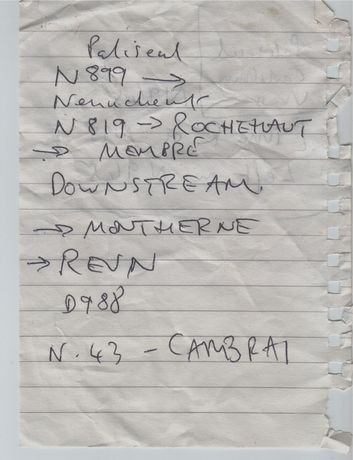 Paliseul
N899 →
N819 → ROCHEHAUT
→ MEMBRÉ
DOWNSTREAM
→ MONTHERNE
→ REVIN
D988
N.43 - CAMBRAI